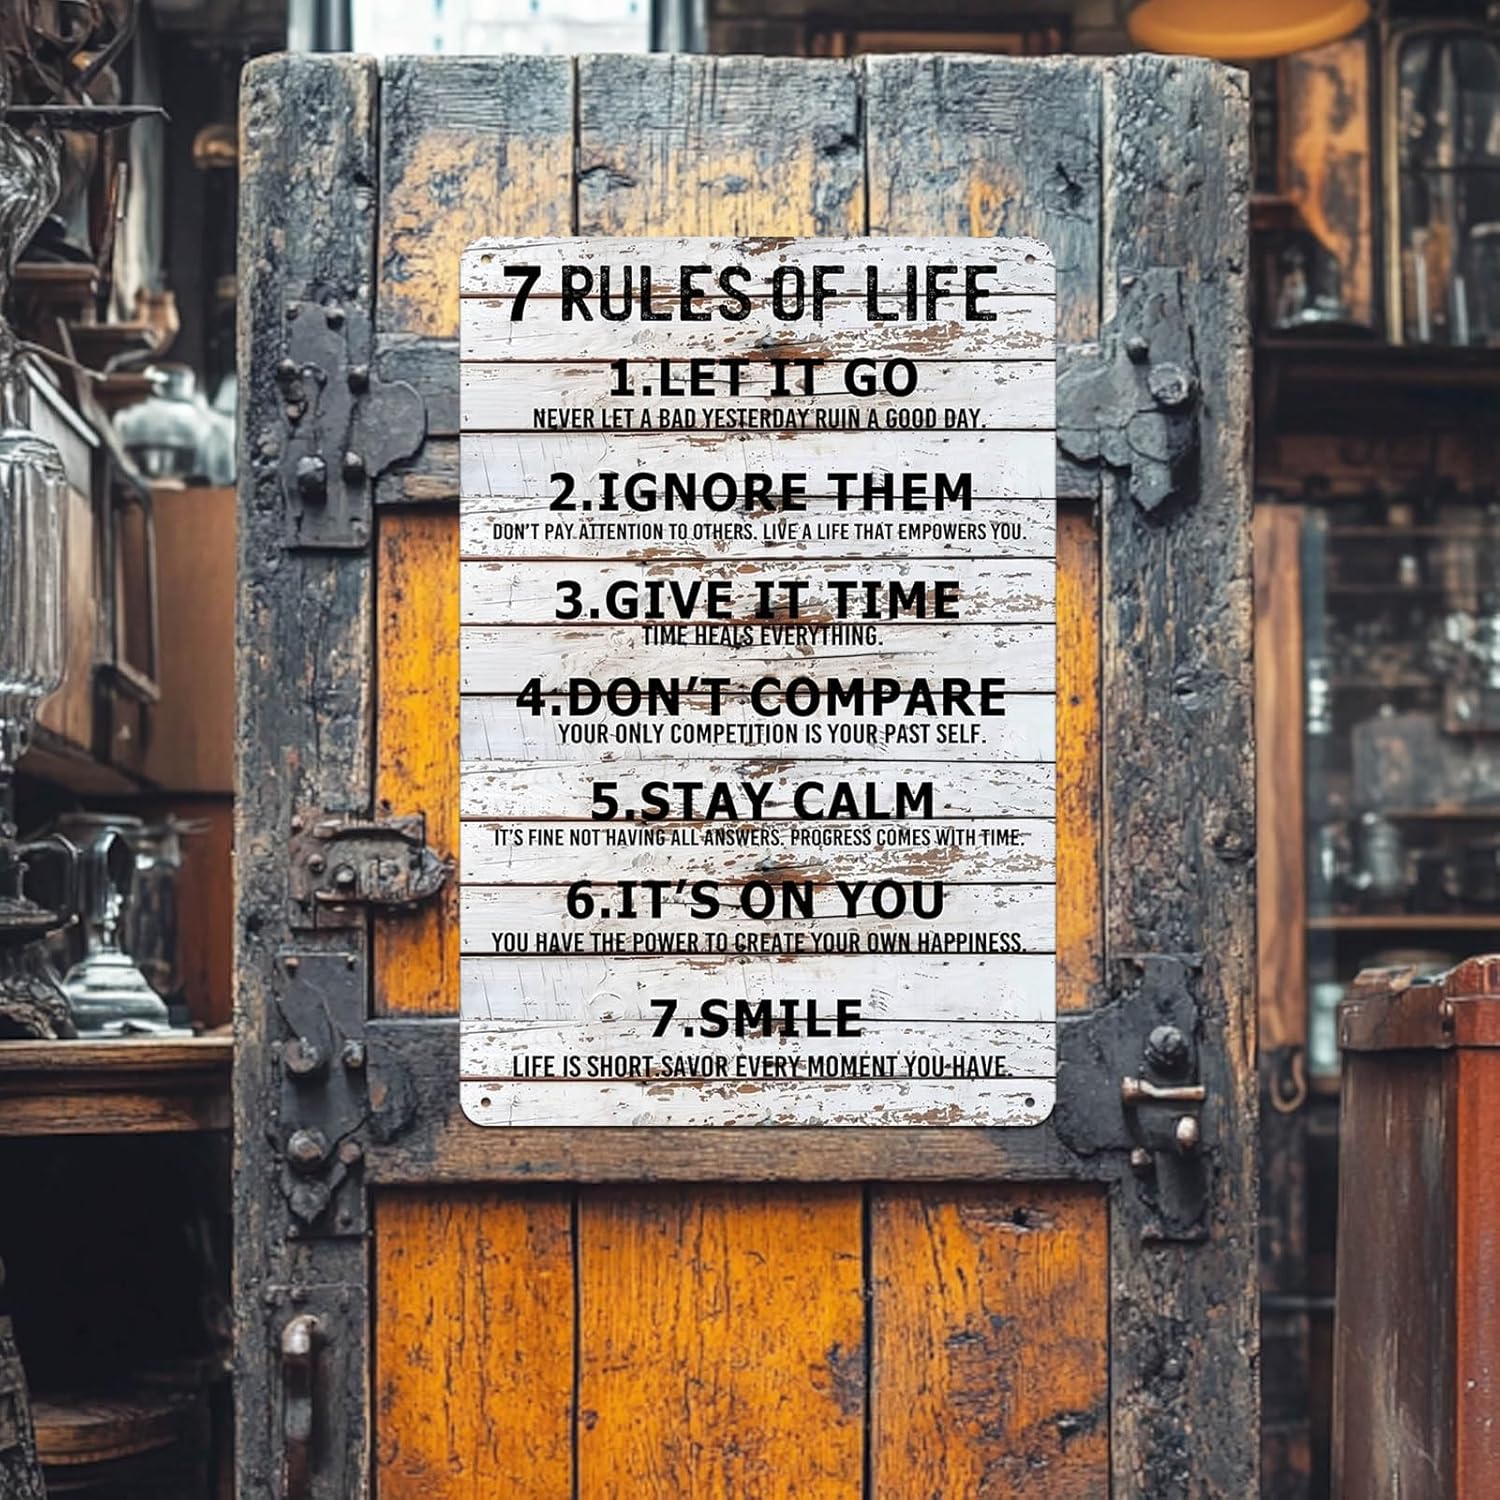 7 RULES OF LIFE
1.LET IT GO
NEVER LET A BAD YESTERDAY RUIN A GOOD DAY.
2.IGNORE THEM
DON'T PAY ATTENTION TO OTHERS. LIVE A LIFE THAT EMPOWERS YOU.
3.GIVE IT TIME
TIME HEALS EVERYTHING.
4.DON'T COMPARE
YOUR ONLY COMPETITION IS YOUR PAST SELF.
5.STAY CALM
IT'S FINE NOT HAVING ALL ANSWERS. PROGRESS COMES WITH TIME.
6.IT'S ON YOU
YOU HAVE THE POWER TO CREATE YOUR OWN HAPPINESS.
7.SMILE
LIFE IS SHORT.SAVOR EVERY MOMENT YOU HAVE.